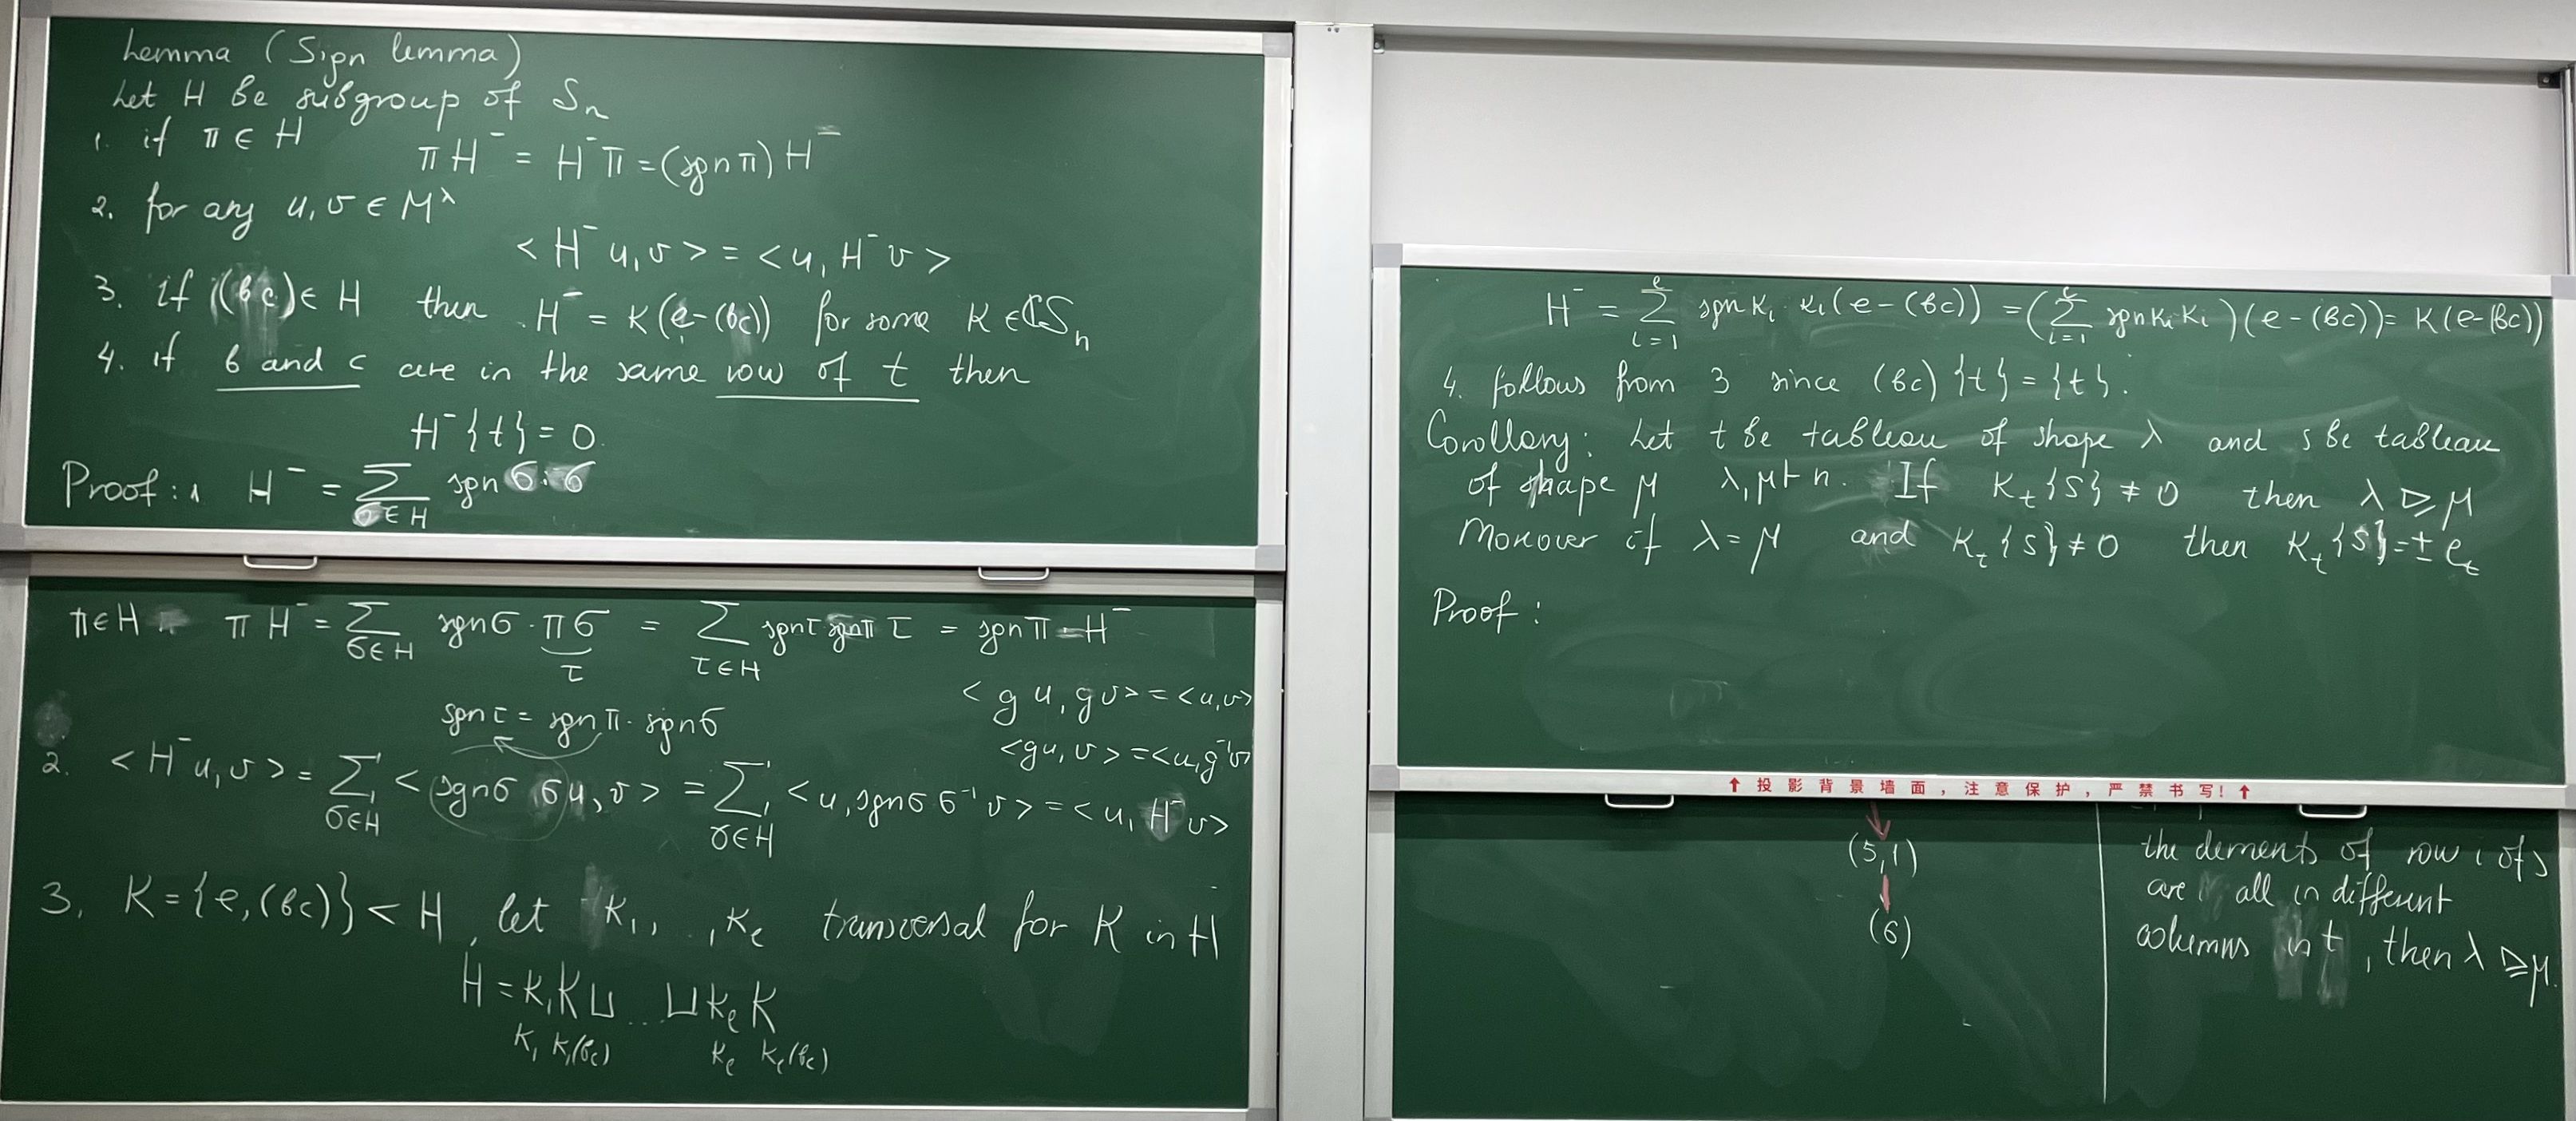 Lemma (Sign lemma)
Let H be subgroup of Sₙ
1. if π ∈ H
π H⁻ = H⁻ π = (sgn π) H⁻
2. for any u, v ∈ M^λ
< H⁻ u, v > = < u, H⁻ v >
3. If (bc) ∈ H then H⁻ = K(e-(bc)) for some K ∈ ℂSₙ
4. if b and c are in the same row of t then
H⁻ {t} = 0.
Proof: 1 H⁻ = Σ_{σ∈H} sgn σ · σ
π∈H π H⁻ = Σ_{σ∈H} sgn σ · πσ = Σ_{τ∈H} sgn τ sgn π τ = sgn π H⁻
τ
sgn τ = sgn π · sgn σ
< g u, g v > = < u, v >
< gu, v > = < u, g⁻¹ v >
2. < H⁻ u, v > = Σ_{σ∈H} < sgn σ σ u, v > = Σ_{σ∈H} < u, sgn σ σ⁻¹ v > = < u, H⁻ v >
3. K = {e, (bc)} < H, let k₁, .., k_ℓ transversal for K in H
H = k₁K ⊔ ... ⊔ k_ℓ K
k₁ k₁(bc) k_ℓ k_ℓ(bc)
H⁻ = Σ_{i=1}^{ℓ} sgn kᵢ kᵢ (e-(bc)) = (Σ_{i=1}^{ℓ} sgn kᵢ kᵢ)(e-(bc)) = K(e-(bc))
4. follows from 3 since (bc) {t} = {t}.
Corollary: Let t be tableau of shape λ and s be tableau
of shape μ λ, μ ⊢ n. If K_t {s} ≠ 0 then λ ⊵ μ
Moreover if λ = μ and K_t {s} ≠ 0 then K_t {s} = ± e_t
Proof:
↑ 投影背景墙面，注意保护，严禁书写！↑
(5,1)
(6)
the elements of row i of s
are all in different
columns in t, then λ ⊵ μ.